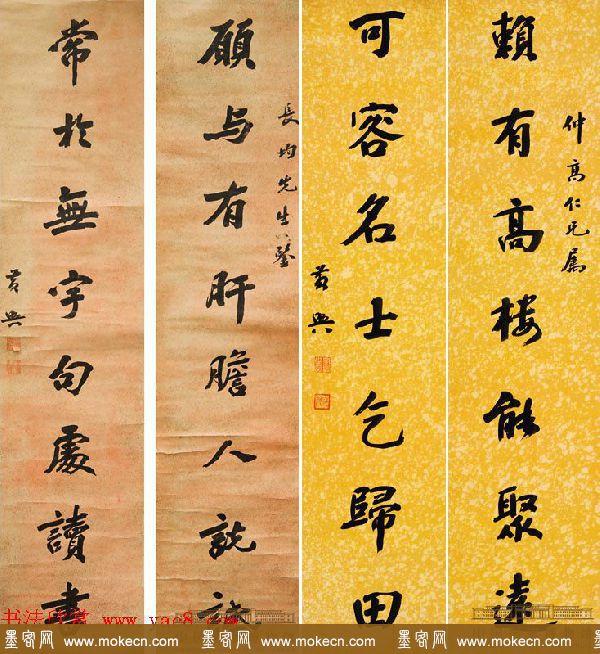 賴有高樓能聚遠
仲高仁兄属
可容名士乞歸田
黄興
長均先生鑒
願与有肝膽人説話
常於無字句處讀書
黄興
书法欣赏 www.yac8.com
墨客网 www.mokecn.com 墨客网 www.mokecn.com 墨客网 www.mokecn.com